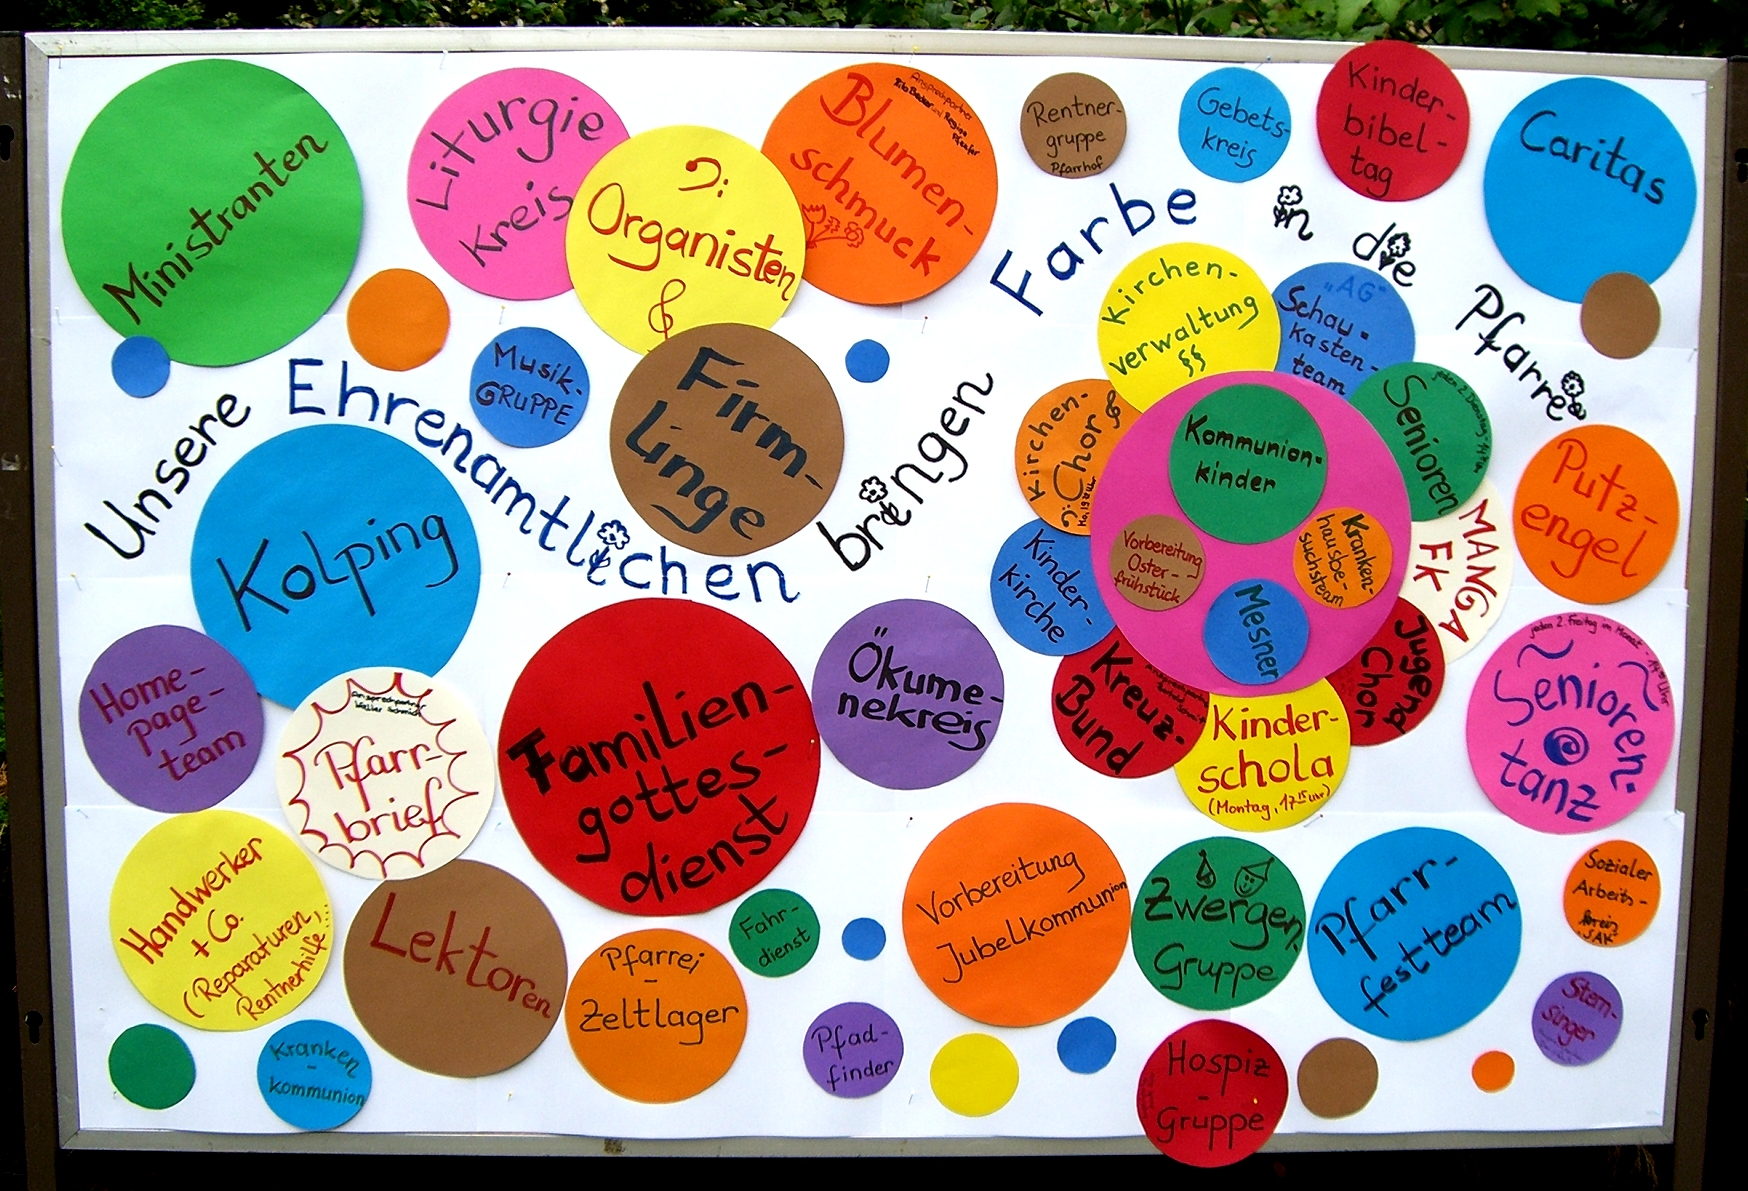 Unsere Ehrenamtlichen bringen Farbe in die Pfarrei
Ministranten
Liturgie
kreis
Organisten
Blumen-
schmuck
Ansprechpartner
Rentner-
gruppe
Pfarrhof
Gebets-
kreis
Kinder-
bibel-
tag
Caritas
Musik-
GRUPPE
Firm-
linge
Kirchen-
verwaltung
§§
"AG"
Schau-
kasten-
team
Senioren
Kirchen-
Chor
Kommunion-
kinder
Vorbereitung
Oster-
frühstück
Kranken-
hausbe-
suchsteam
Mesner
MANGA
FK
Putz-
engel
Kolping
Kinder-
kirche
Kreuz-
Bund
Jugend
Chor
Kinder-
schola
(Montag, 17 15 Uhr)
jeden 2. Freitag im Monat
Senioren-
tanz
Home-
page-
team
Pfarr-
brief
Familien-
gottes-
dienst
Ökume-
nekreis
Handwerker
+ Co.
(Reparaturen,
Rentnerhilfe...)
Lektoren
Pfarrei
-
Zeltlager
Fahr-
dienst
Vorbereitung
Jubelkommunion
Zwergen-
Gruppe
Pfarr-
festteam
Sozialer
Arbeits-
kreis
"SAK"
Stern-
singer
Kranken
-
kommunion
Pfad-
finder
Hospiz
-
Gruppe